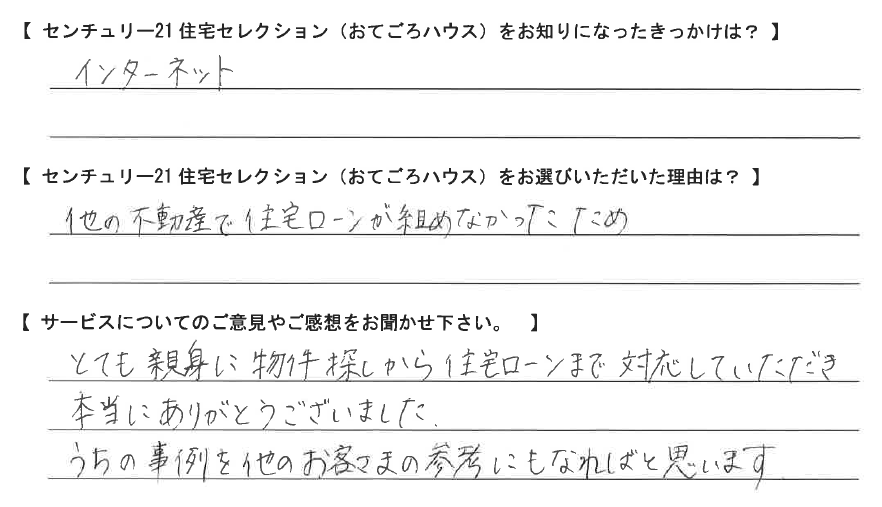 【 センチュリー21 住宅セレクション（おてごろハウス）をお知りになったきっかけは？ 】
インターネット
【 センチュリー21 住宅セレクション（おてごろハウス）をお選びいただいた理由は？ 】
他の不動産で住宅ローンが組めなかったため
【 サービスについてのご意見やご感想をお聞かせ下さい。 】
とても親身に物件探しから住宅ローンまで対応していただき
本当にありがとうございました.
うちの事例を他のお客さまの参考にもなればと思います